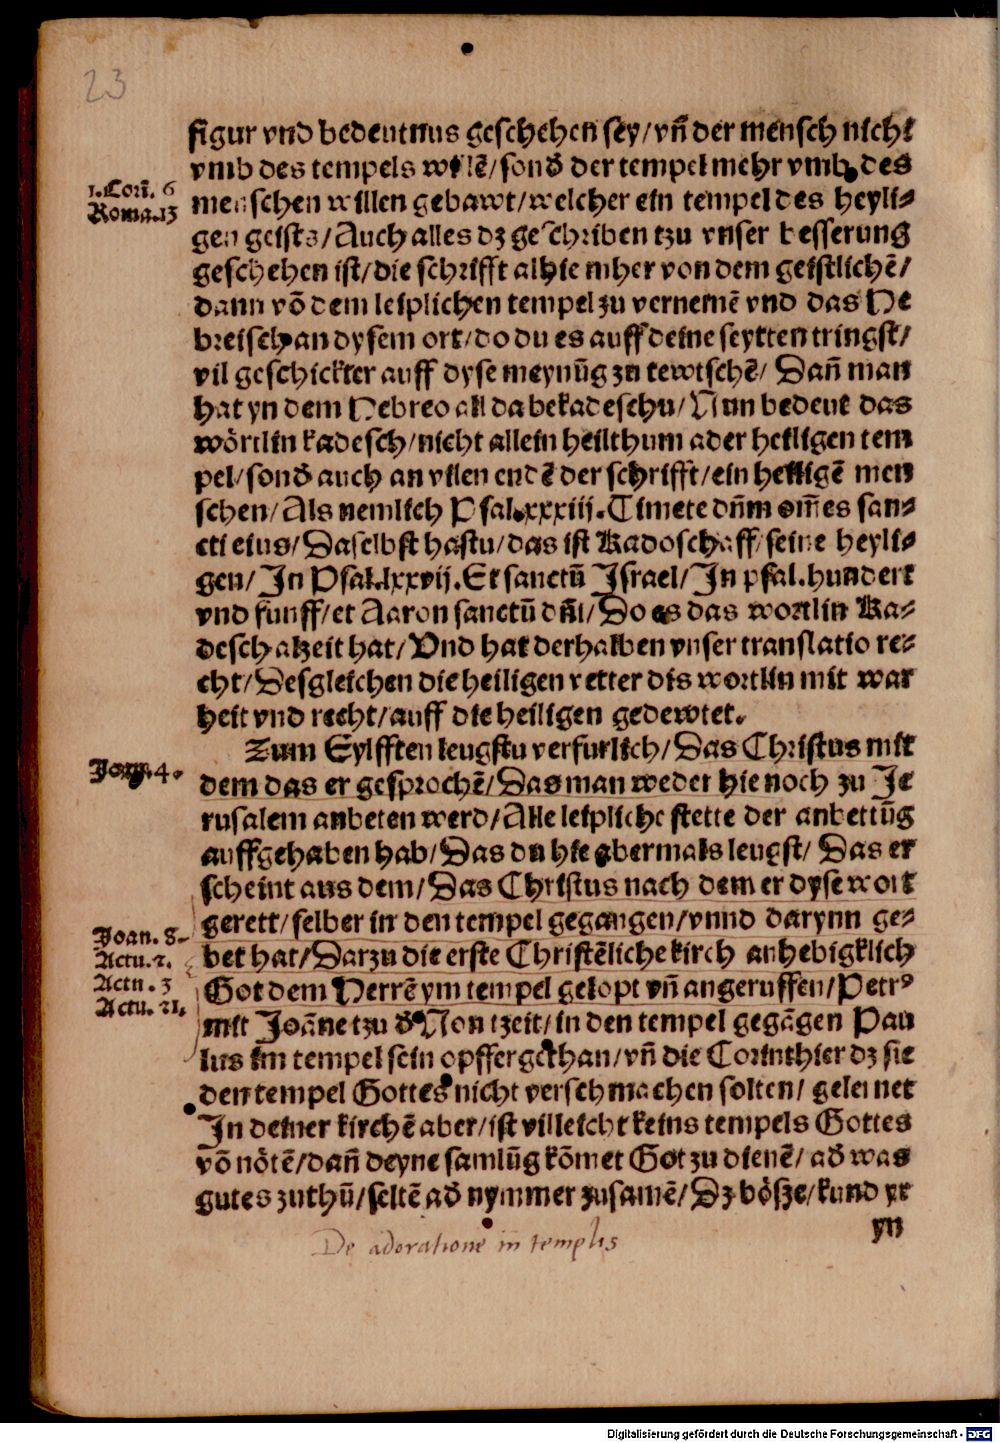 23
figur vnd bedeutnus geschehen sey/vñ der mensch nicht
vmb des tempels willē/sond̄ der tempel mehr vmb des
1. Corī. 6
menschen willen gebawt/welcher ein tempel des heyli-
Roma.13
gen geists/Auch alles dz geschriben tzu vnser besserung
geschehen ist/die schrifft alhie mher von dem geistlichē/
dann vō dem leiplichen tempel zu vernemē vnd das He
breisch an dysem ort/do du es auff deine seytten tringst/
vil geschickter auff dyse meynūg zu tewtschē/ Dañ man
hat yn dem Hebreo all da bekadeschu/Nun bedeut das
wörtlin kadesch/nicht allein heilthum ader heiligen tem
pel/sond̄ auch an vilen endē der schrifft/ein heiligē men
schen/Als nemlich Psal.xxxiij.Timete dn̄m om̄es san-
cti eius/Daselbst hastu/das ist Kadoschaff/seine heyli-
gen/In Psal.lxxvij.Et sanctū Israel/In psal.hundert
vnd funff/et Aaron sanctū dn̄i/Do es das wortlin Ka-
desch alzeit hat/Vnd hat derhalben vnser translatio re-
cht/Desgleichen die heiligen vetter dis wortlin mit war
heit vnd recht/auff die heiligen gedewtet.
Zum Eylfften leugstu verfurlich/Das Christus mit
Joan.4.
dem das er gesprochē/Das man weder hie noch zu Je
rusalem anbeten werd/Alle leipliche stette der anbettūg
auffgehaben hab/Das du hie abermals leugst/ Das er
scheint aus dem/Das Christus nach dem er dyse wort
gerett/selber in den tempel gegangen/vnnd darynn ge-
Joan. 8.
bet hat/Darzu die erste Christēliche kirch anhebigklich
Actu.2.
Got dem Herrē ym tempel gelopt vñ angeruffen/Petrꝰ
Actu. 3
mit Joāne tzu d̄ Non tzeit/in den tempel gegāgen Pau
Actu. 21.
lus im tempel sein opffer gethan/vñ die Corinthier dz sie
den tempel Gottes nicht verschmachen solten/ gelernet
In deiner kirchē aber/ist villeicht keins tempels Gottes
vō nötē/dañ deyne samlūg kōmet Got zu dienē/ ad̄ was
gutes zuthū/seltē ad̄ nymmer zusamē/Dz bösze/kund yr
yn
De adoratione in templis
Digitalisierung gefördert durch die Deutsche Forschungsgemeinschaft - DFG